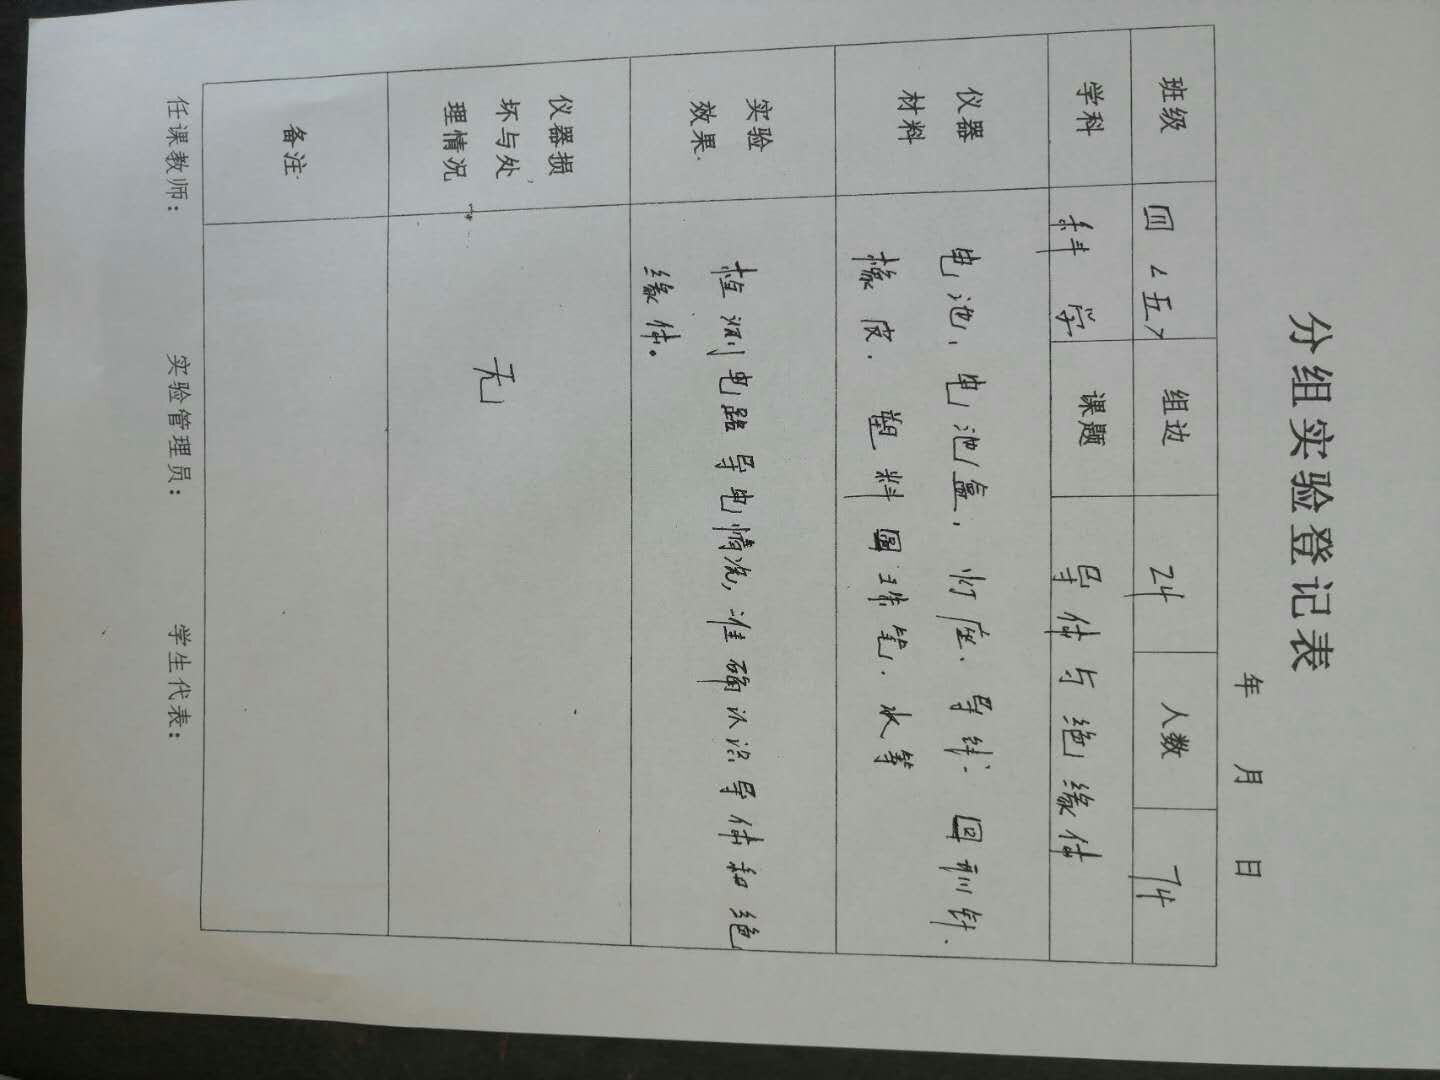 分组实验登记表
年 月 日
班级 四<五> 组边 24 人数 74
学科 科学 课题 导体与绝缘体
仪器材料 电池、电池盒、灯座、导线、回形针、
橡皮、塑料圆珠笔、水等
实验效果 检测电路导电情况,准确认识导体和绝
缘体。
仪器损坏与处理情况 无
备注
任课教师: 实验管理员: 学生代表: